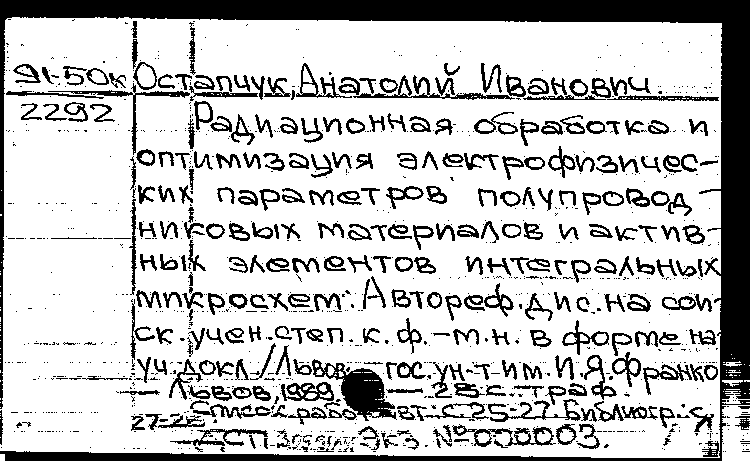 91-50к Остапчук, Анатолий Иванович.
2292 Радиационная обработка и
оптимизация электрофизичес-
ких параметров полупровод-
никовых материалов и актив-
ных элементов интегральных
микросхем: Автореф. дис. на сои-
ск. учен. степ. к. ф.-м. н. в форме на-
уч. докл./Львов. гос. ун-т им. И.Я. Франко
— Львов, 1989. — 28 с. граф.
Список работ авт.: с. 25-27. Библиогр.: с.
27-28
ДСП Экз. № 000003.